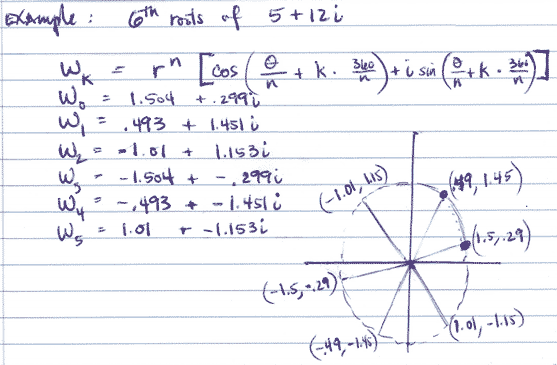 Example : 6th roots of 5 + 12i
W_K = r^n [cos (θ/n + k · 360/n) + i sin (θ/n + k · 360/n)]
W_0 = 1.504 + .299i
W_1 = .493 + 1.451i
W_2 = -1.01 + 1.153i
W_3 = -1.504 + -.299i
W_4 = -.493 + -1.451i
W_5 = 1.01 + -1.153i
(-1.01, 1.15)
(.49, 1.45)
(1.5, .29)
(-1.5, -.29)
(-.49, -1.45)
(1.01, -1.15)